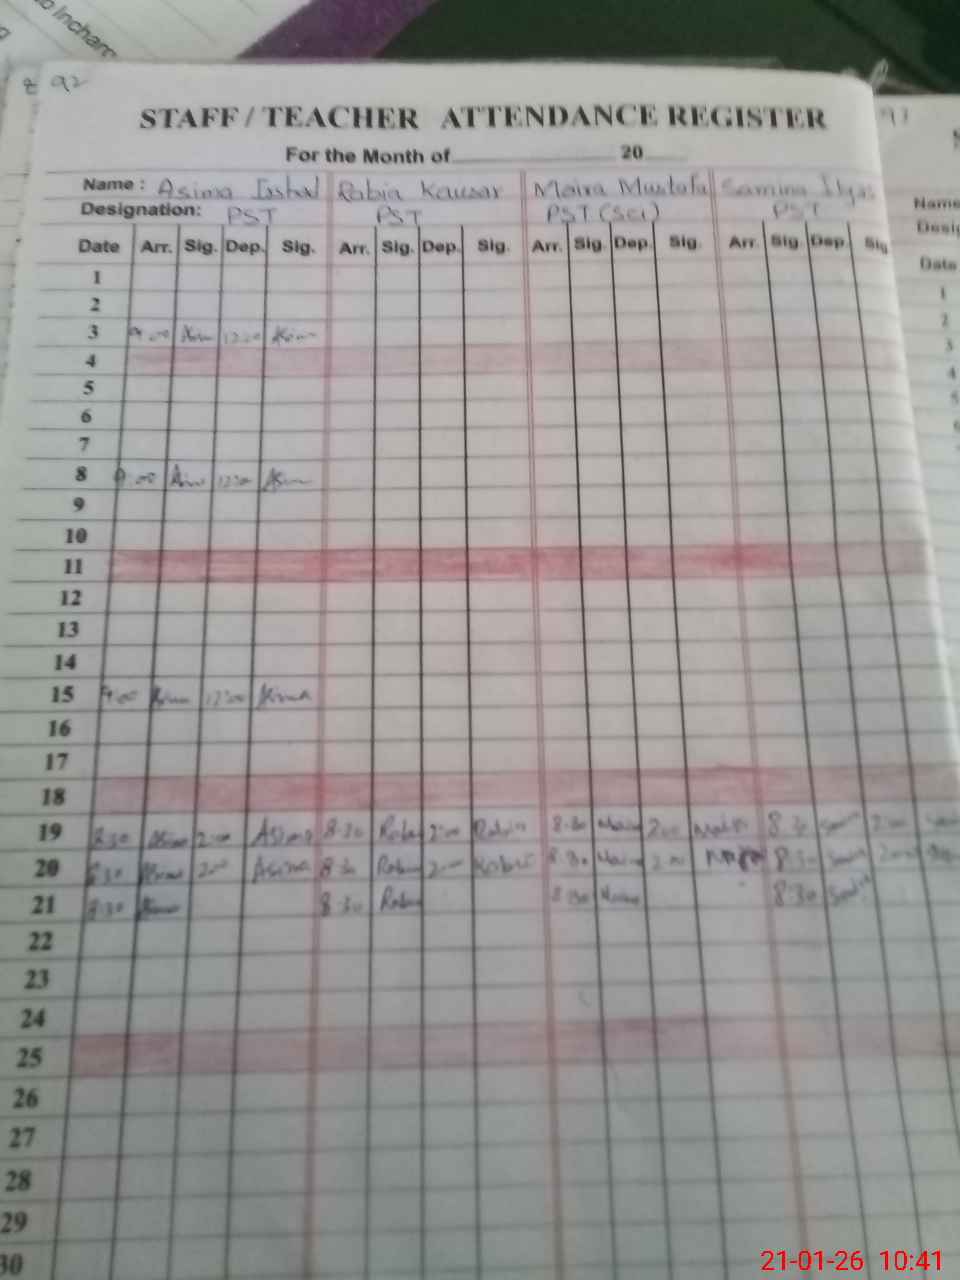 to Incharg
92
STAFF / TEACHER ATTENDANCE REGISTER
For the Month of 20
Name : Asima Irshad Rabia Kausar Maira Mustafa Samina Ilyas
Designation: PST PST PST (Sci) PST
Date Arr. Sig. Dep. Sig. Arr. Sig. Dep. Sig. Arr. Sig. Dep. Sig. Arr. Sig. Dep. Sig
1
2
3 9:00 12:00
4
5
6
7
8 9:00 12:00
9
10
11
12
13
14
15 9:00 12:00
16
17
18
19 8:30 Asima 2:00 Asima 8:30 Rabia 2:00 Rabia 8:30 Maira 2:00 Maira 8:30 2:00
20 8:30 2:00 Asima 8:30 Rabia 2:00 Rabia 8:30 Maira 2:00 8:30 2:00
21 8:30 8:30 Rabia 8:30 Maira 8:30
22
23
24
25
26
27
28
29
30
Name
Desig
Date
1
2
3
4
5
21-01-26 10:41